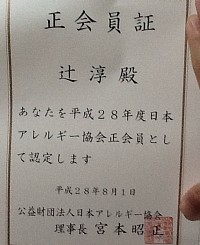 正会員証
辻淳殿
あなたを平成28年度日本
アレルギー協会正会員とし
て認定します
平成28年8月1日
公益財団法人日本アレルギー協会
理事長 宮本昭正